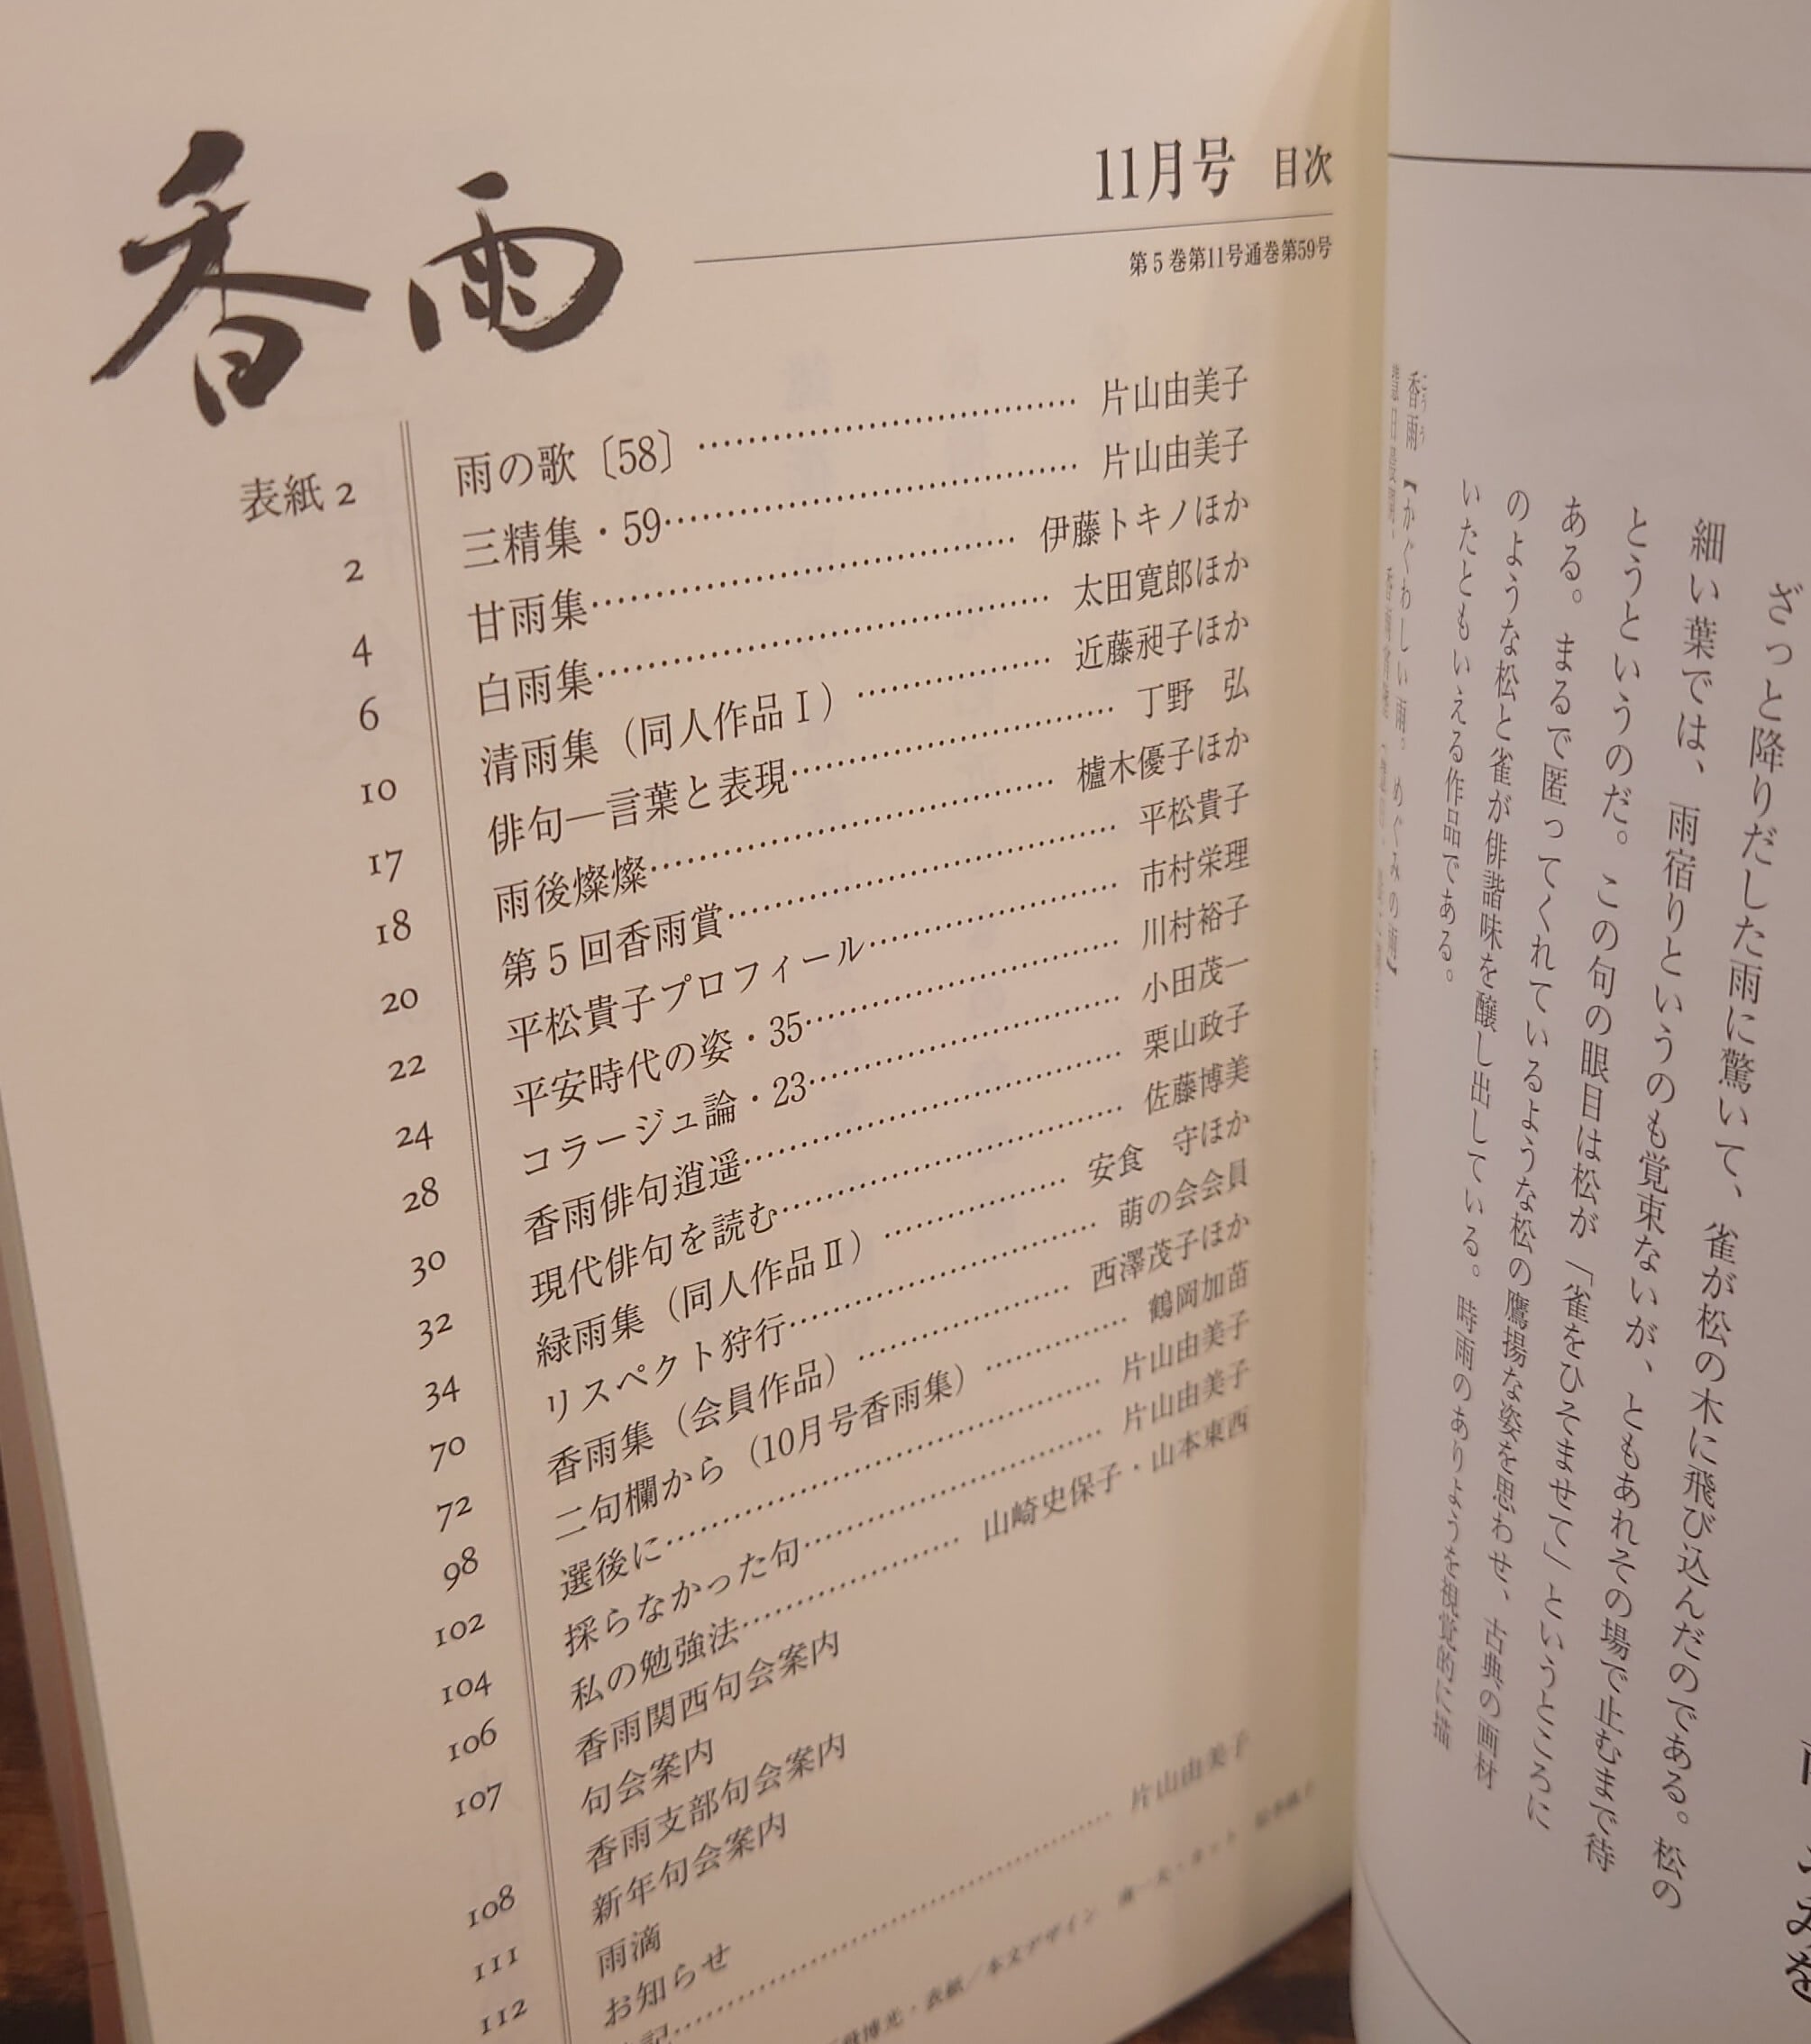 香雨
11月号 目次
第5巻第11号通巻第59号
表紙2 雨の歌〔58〕 片山由美子
2 三精集・59 片山由美子
4 甘雨集 伊藤トキノほか
6 白雨集 太田寛郎ほか
10 清雨集（同人作品Ⅰ） 近藤昶子ほか
17 俳句―言葉と表現 丁野　弘
18 雨後燦燦 櫨木優子ほか
20 第5回香雨賞 平松貴子
22 平松貴子プロフィール 市村栄理
24 平安時代の姿・35 川村裕子
28 コラージュ論・23 小田茂一
30 香雨俳句逍遥 栗山政子
32 現代俳句を読む 佐藤博美
34 緑雨集（同人作品Ⅱ） 安食　守ほか
70 リスペクト狩行 萌の会会員
72 香雨集（会員作品） 西澤茂子ほか
98 二句欄から（10月号香雨集） 鶴岡加苗
102 選後に 片山由美子
104 採らなかった句 片山由美子
106 私の勉強法 山崎史保子・山本東西
107 香雨関西句会案内
句会案内
108 香雨支部句会案内
111 新年句会案内
112 雨滴
お知らせ
記 片山由美子
博光・表紙／本文デザイン
ざっと降りだした雨に驚いて、雀が松の木に飛び込んだのである。松の
細い葉では、雨宿りというのも覚束ないが、ともあれその場で止むまで待
とうというのだ。この句の眼目は松が「雀をひそませて」というところに
ある。まるで匿ってくれているような松の鷹揚な姿を思わせ、古典の画材
のような松と雀が俳諧味を醸し出している。時雨のありようを視覚的に描
いたともいえる作品である。
香雨【かぐわしい雨。めぐみの雨】